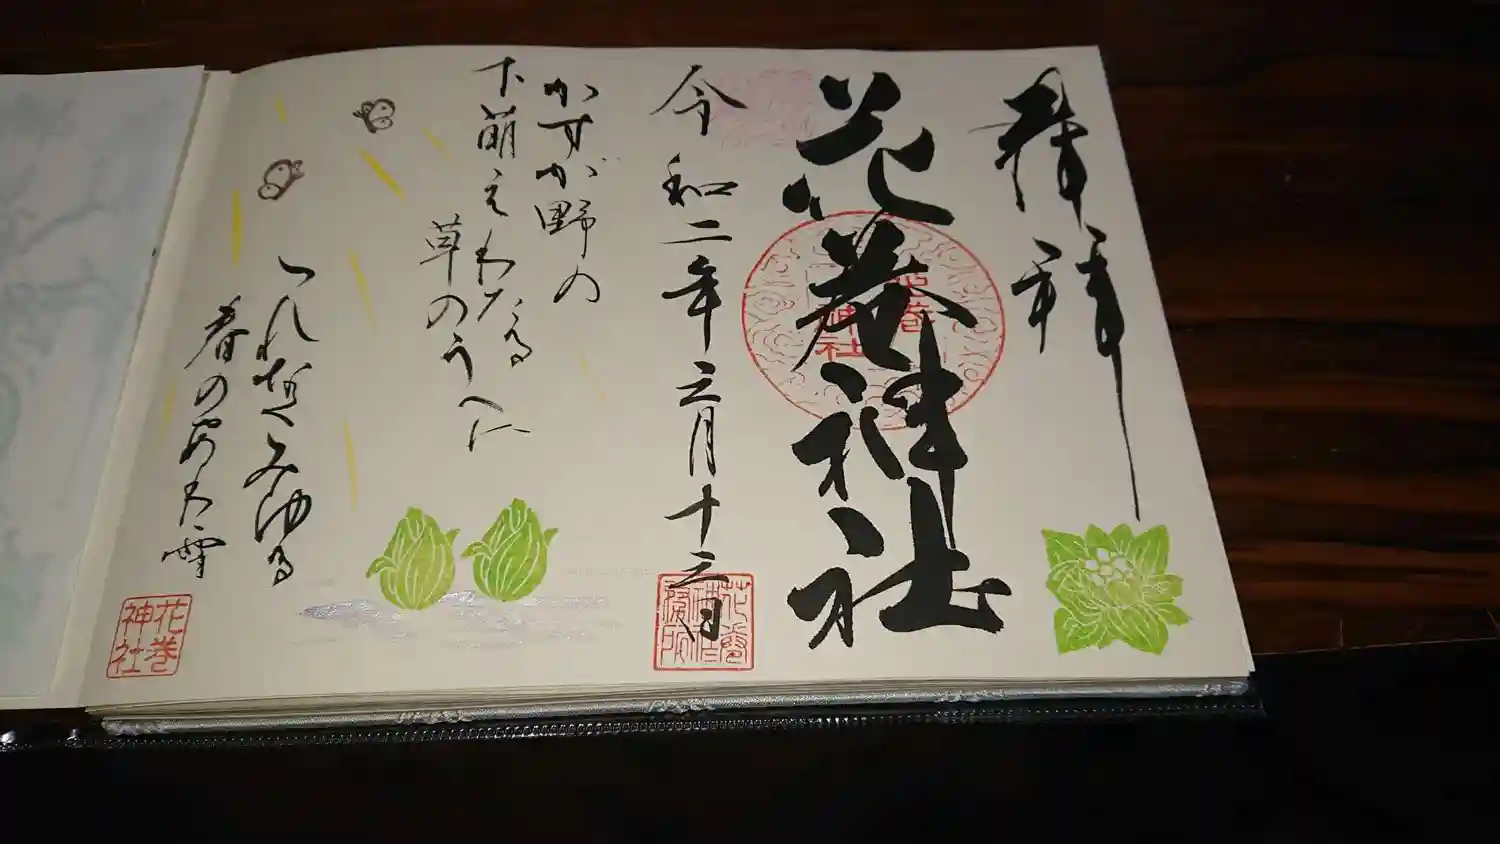 奉拝
花巻神社
花巻
神社
令和二年三月十三日
かすが野の
下萌えわたる
草のうへに
つれなくみゆる
春のあわ雪
花巻
神社